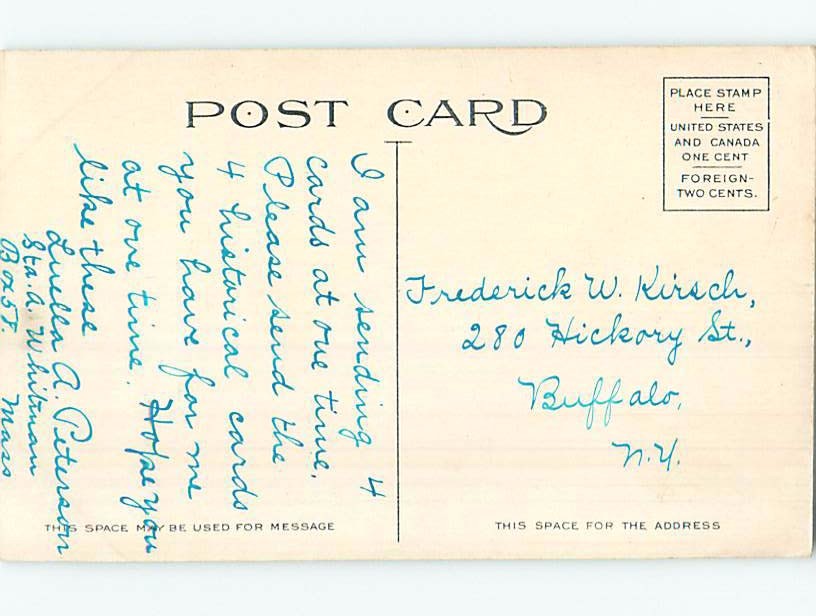 POST CARD
PLACE STAMP
HERE
UNITED STATES
AND CANADA
ONE CENT
FOREIGN-
TWO CENTS.
I am sending 4
cards at one time.
Please send the
4 historical cards
you have for me
at one time. Hope you
like these
Luella A. Peterson
Sta. A. Whitman
Box 57. Mass
Frederick W. Kirsch,
280 Hickory St.,
Buffalo,
N.Y.
THIS SPACE MAY BE USED FOR MESSAGE
THIS SPACE FOR THE ADDRESS